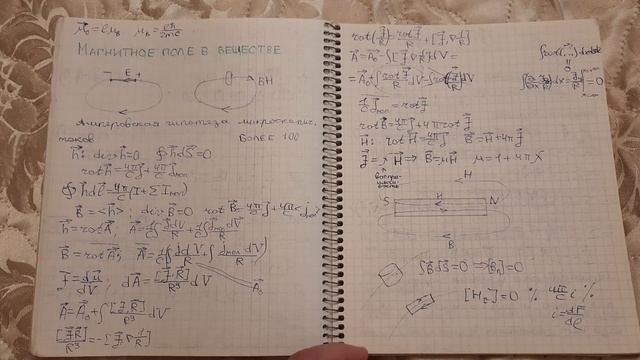 μ⃗₀ = lμ_B   μ_B = eħ/2mc
МАГНИТНОЕ ПОЛЕ В ВЕЩЕСТВЕ
- E +
BH
Амперовская гипотеза микроскопич.
токов БОЛЕЕ 100
h⃗: div h⃗ = 0   ∮h⃗dS⃗ = 0
rot h⃗ = 4π/c j⃗ + 4π/c j⃗мол
∮h⃗dl⃗ = 4π/c (I + Σ Iмол)
B⃗ = <h⃗>; div B⃗ = 0   rot B⃗ = 4π/c j⃗ + 4π/c <j⃗мол>
h⃗ = rot A⃗;   A⃗ = 1/c ∫ j⃗dV/R + 1/c ∫ j⃗мол dV/R
B⃗ = rot A⃗;   A⃗ = 1/c (∫ j⃗dV/R + ∫ j⃗мол dV/R)
A⃗₀
J⃗ = dμ⃗/dV;   dA⃗ = [J⃗,R⃗]/R³ dV
A⃗ = A⃗₀ + ∫ [J⃗,R⃗]/R³ dV
[J⃗R⃗]/R³ = -[J⃗ ∇ 1/R]
rot(J⃗/R) = rot J⃗/R + [J⃗,∇ 1/R]
A⃗ = A⃗₀ - ∫[J⃗ ∇ 1/R]dV =
= A⃗₀ + ∫ rot J⃗/R dV - ∫ rot(J⃗/R) dV
= 0
1/c j⃗мол = rot J⃗
rot B⃗ = 4π/c j⃗ + 4π rot J⃗
H⃗: rot H⃗ = 4π/c j⃗   B⃗ = H⃗ + 4πJ⃗
J⃗ = χH⃗ ⇒ B⃗ = μH⃗   μ = 1 + 4πχ
H
S H N
B
∫B⃗dS⃗ = 0 ⇒ [Bₙ] = 0
[H_τ] = 0 % 4π/c i %
i = dI/dl